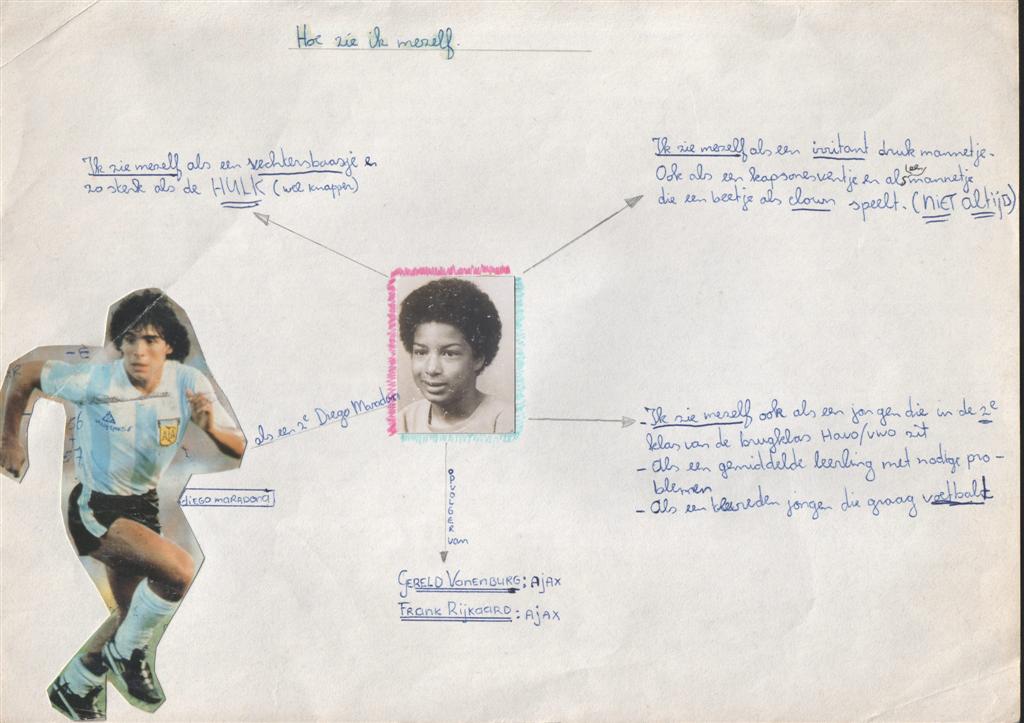 Hoe zie ik mezelf.
Ik zie mezelf als een vechtersbaasje en
zo sterk als de HULK (wel knapper)
Ik zie mezelf als een irritant druk mannetje.
Ook als een kapsonesventje en als een mannetje
die een beetje als clown speelt. (NIET altijD)
als een 2e Diego Maradona
DIEGO MARADONA
- Ik zie mezelf ook als een jongen die in de 2e
klas van de brugklas Havo/vwo zit
- Als een gemiddelde leerling met nodige pro-
blemen
- Als een tevreden jongen die graag voetbalt
OPVOLGER van
GERELD VANENBURG: AjAX
FRANK RIJKAARD: AjAX
AFA